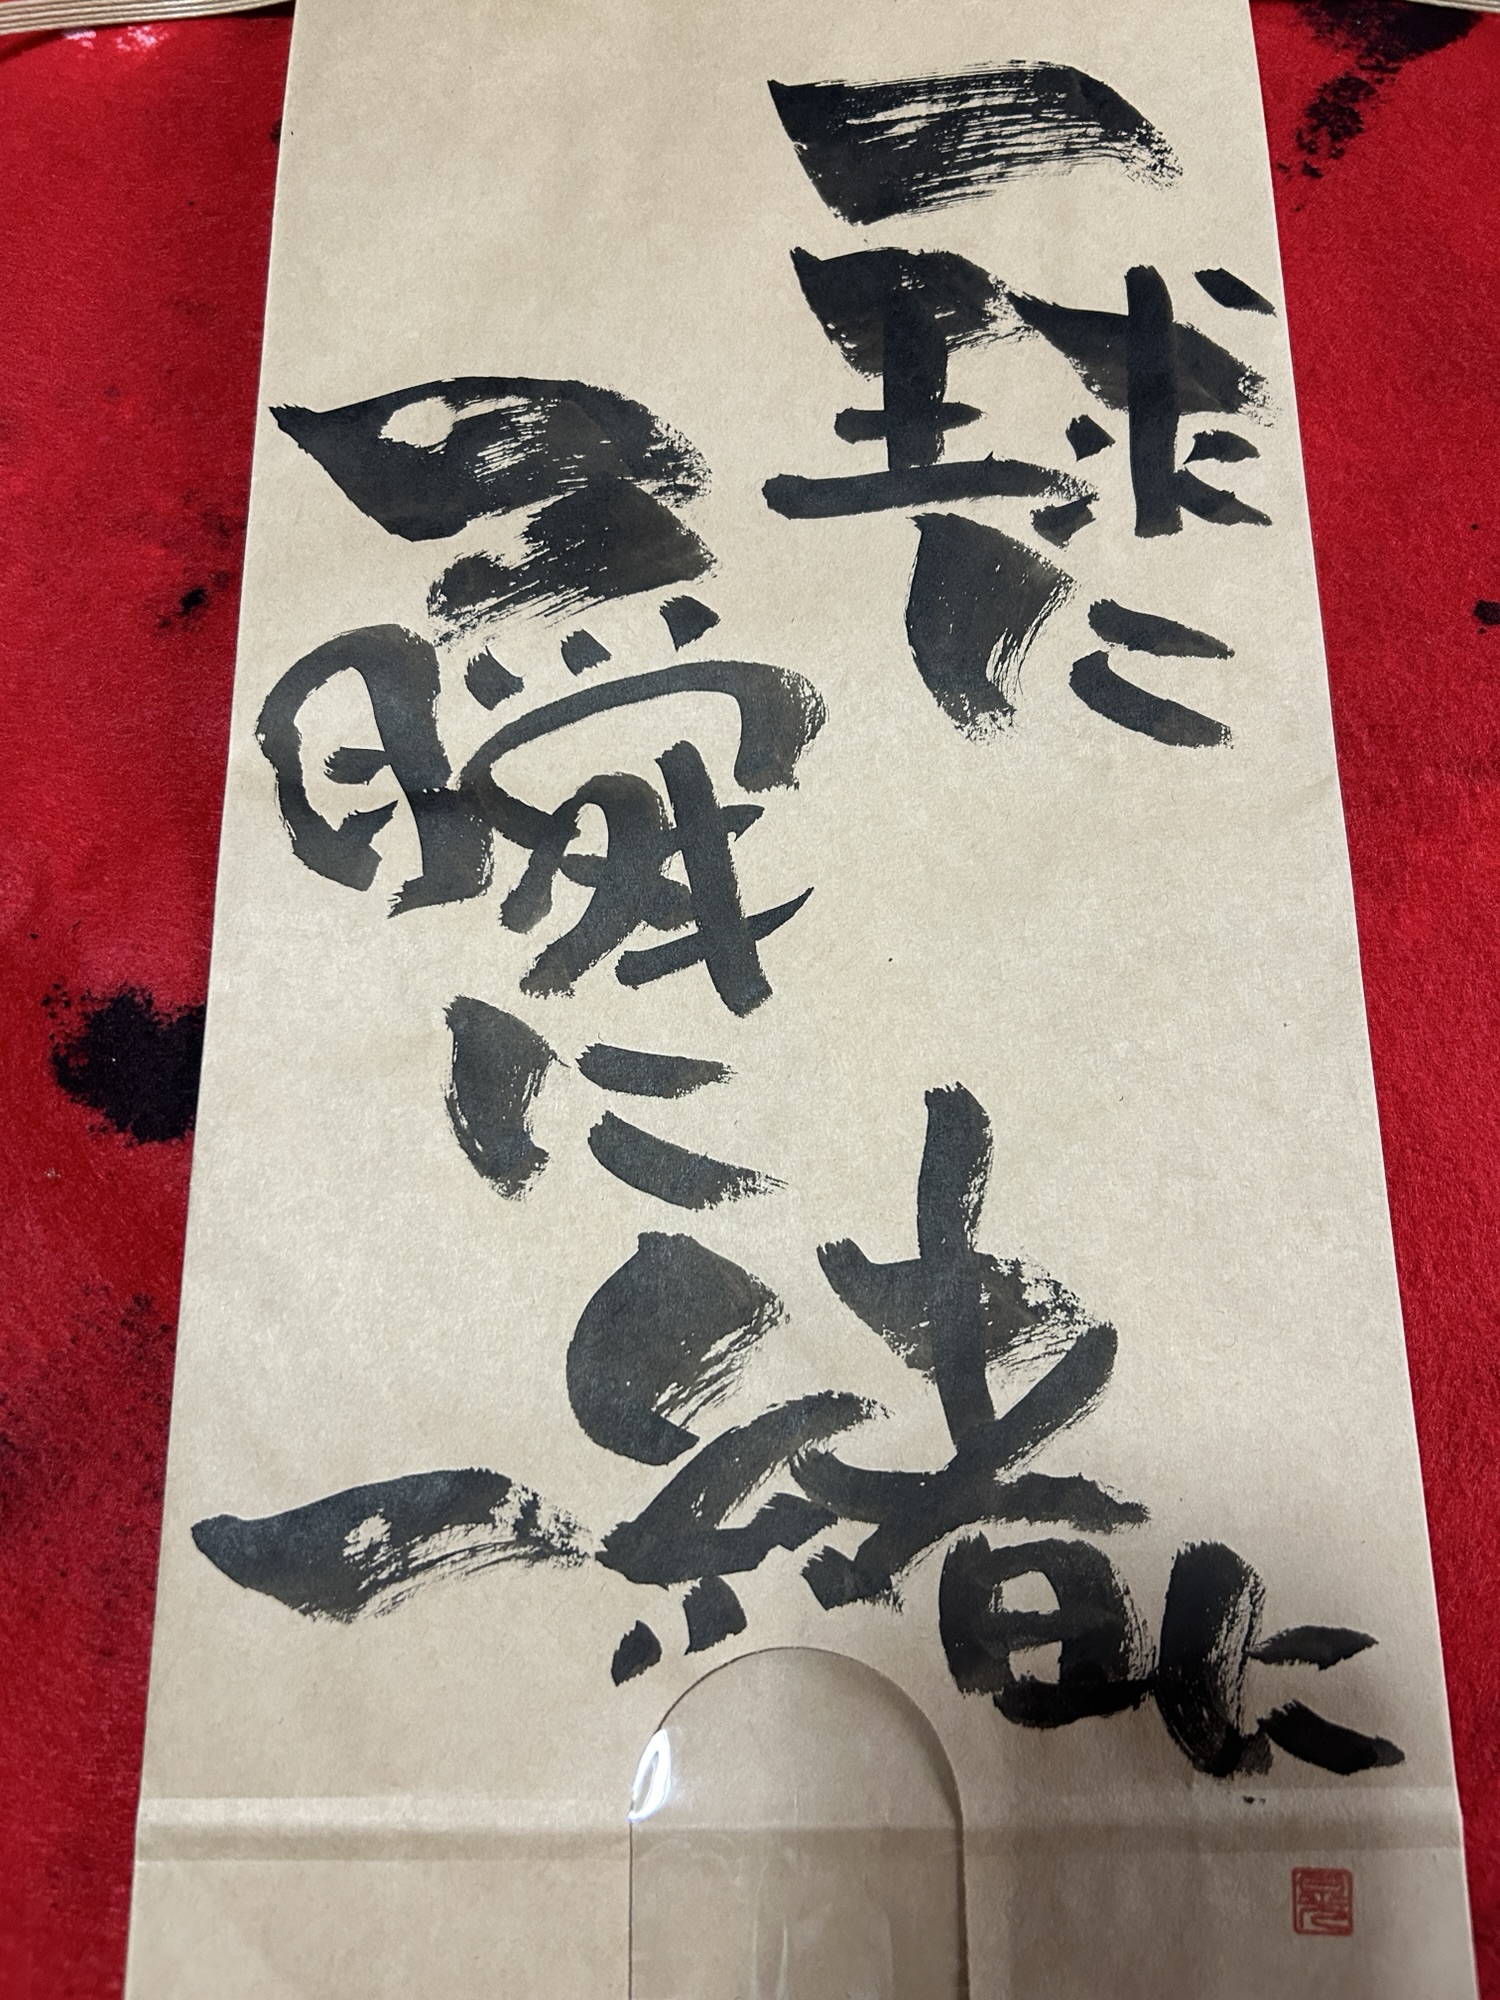 一球に
一瞬に
一緒に